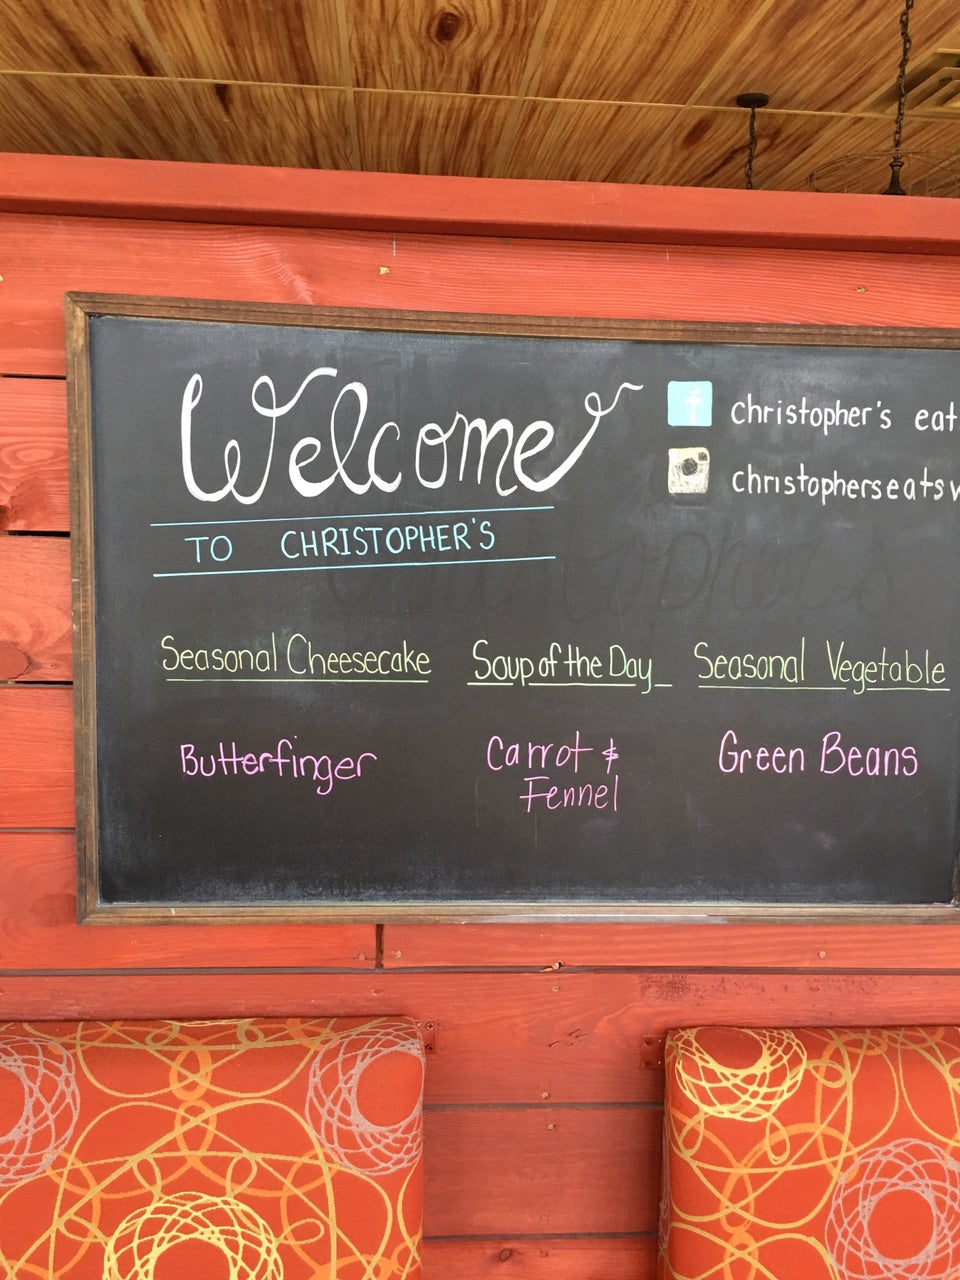 Welcome
TO CHRISTOPHER'S
f christopher's eat
christopherseatsw
Seasonal Cheesecake
Butterfinger
Soup of the Day
Carrot &
Fennel
Seasonal Vegetable
Green Beans